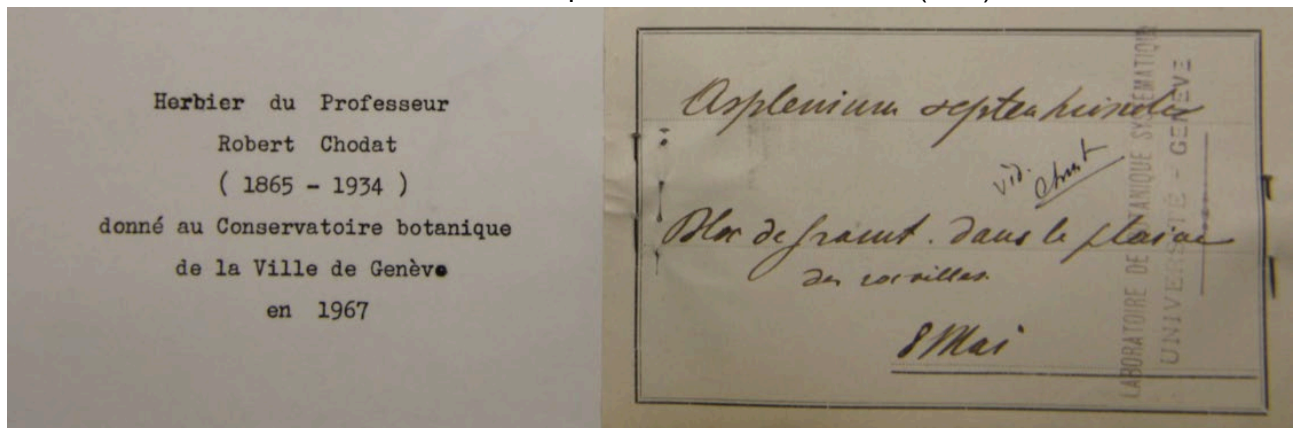 Herbier du Professeur
Robert Chodat
( 1865 - 1934 )
donné au Conservatoire botanique
de la Ville de Genève
en 1967
Asplenium septentrionale
vid. Christ
Bloc de granit. dans la plaine
des
8 Mai
LABORATOIRE DE BOTANIQUE SYSTÉMATIQUE
UNIVERSITÉ - GENÈVE